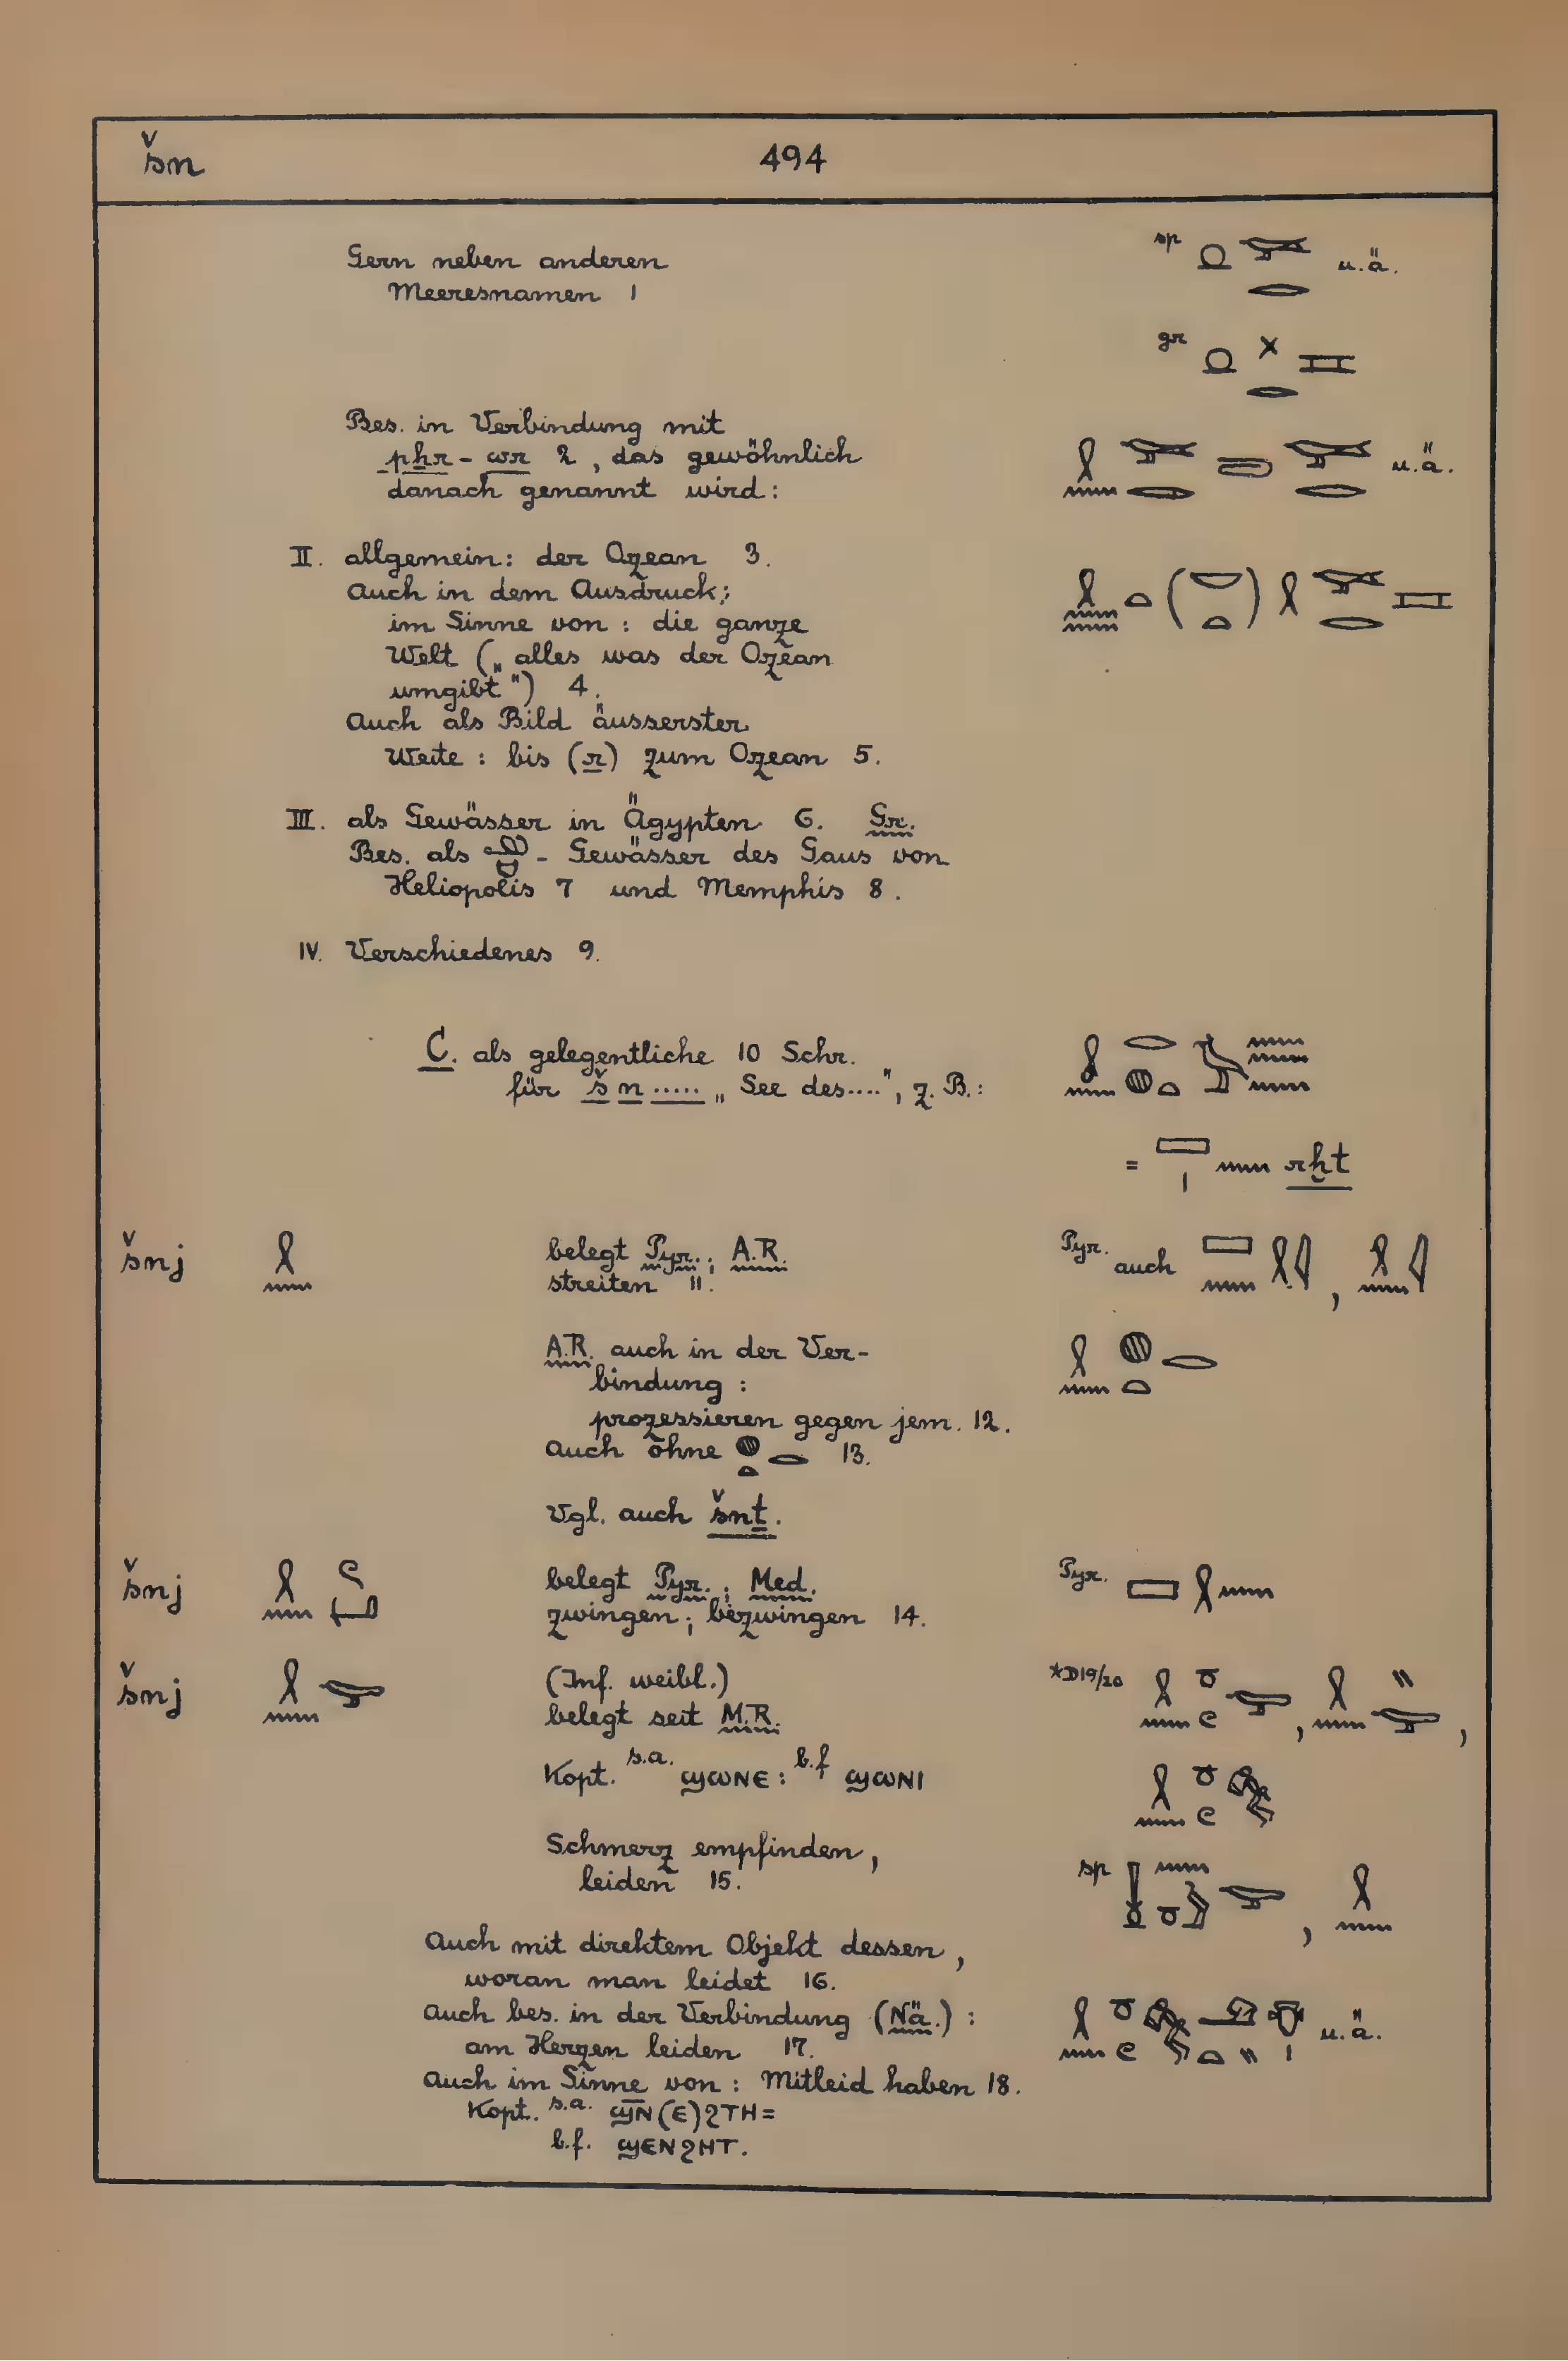 šn 494
Gern neben anderen sp u.ä.
Meeresnamen 1
gr
Bes. in Verbindung mit
pẖr - wr 2, das gewöhnlich u.ä.
danach genannt wird:
II. allgemein: der Ozean 3.
Auch in dem Ausdruck;
im Sinne von: die ganze
Welt („alles was der Ozean
umgibt") 4.
Auch als Bild äusserster
Weite: bis (r) zum Ozean 5.
III. als Gewässer in Ägypten 6. Gr.
Bes. als - Gewässer des Gaus von
Heliopolis 7 und Memphis 8.
IV. Verschiedenes 9.
C. als gelegentliche 10 Schr.
für š n ..... „See des....", z.B.:
= rḫt
šnj 𓍲𓈖 belegt Pyr.; A.R. Pyr. auch
streiten 11.
A.R. auch in der Ver-
bindung:
prozessieren gegen jem. 12.
Auch ohne 𓐍𓏏𓂋 13.
Vgl. auch šnṯ.
šnj belegt Pyr.; Med. Pyr.
zwingen; bezwingen 14.
šnj (Inf. weibl.) *D19/20
belegt seit M.R.
Kopt. s.a. ϣⲱⲛⲉ: b.f ϣⲱⲛⲓ
Schmerz empfinden,
leiden 15. sp
Auch mit direktem Objekt dessen,
woran man leidet 16.
Auch bes. in der Verbindung (Nä.): u.ä.
am Herzen leiden 17.
Auch im Sinne von: Mitleid haben 18.
Kopt. s.a. ϣⲛ̄(ⲉ)ϩⲧⲏ=
b.f. ϣⲉⲛϩⲏⲧ.